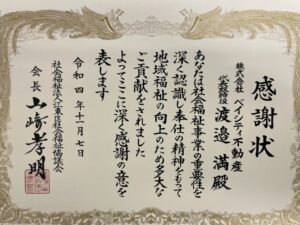 感謝状
株式会社 ペインティ不動産
代表取締役 渡邉 満 殿
あなたは社会福祉事業の重要性を
深く認識し奉仕の精神をもって
地域福祉の向上のため多大な
ご貢献をされました
よってここに深く感謝の意を
表します
令和四年十一月七日
社会福祉法人江東区社会福祉協議会
会長 山﨑孝明